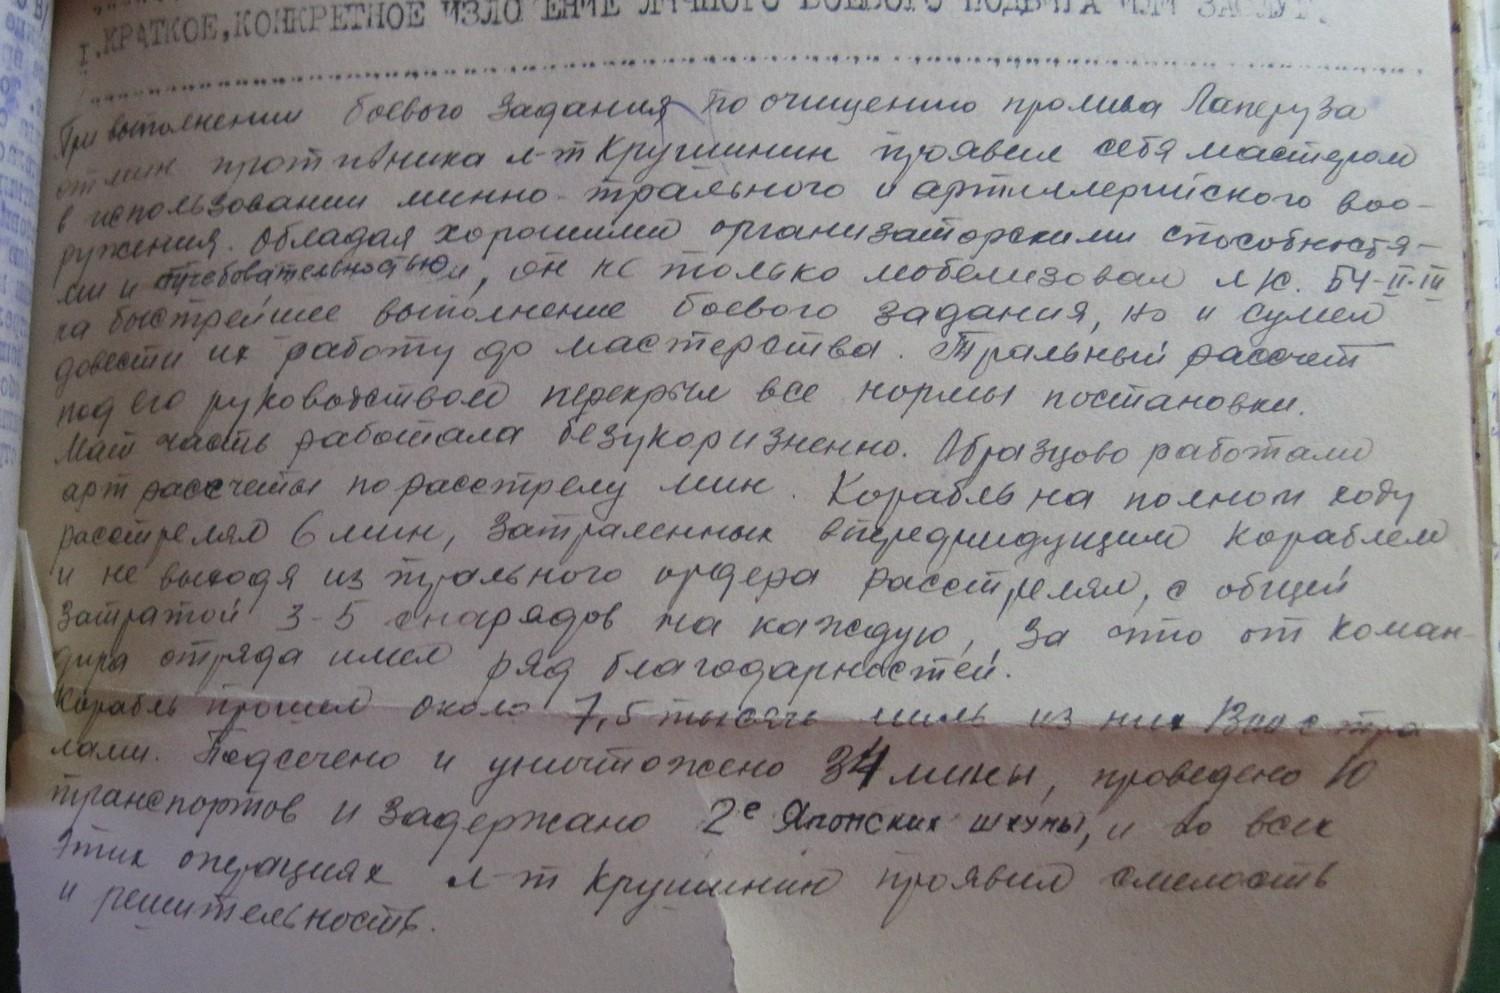 I. КРАТКОЕ, КОНКРЕТНОЕ ИЗЛОЖЕНИЕ ЛИЧНОГО БОЕВОГО ПОДВИГА ИЛИ ЗАСЛУГ.
При выполнении боевого задания по очищению пролива Лаперуза
от мин противника л-т Крушинин проявил себя мастером
в использовании минно-трального и артиллерийского воо-
ружения. Обладая хорошими организаторскими способностя-
ми и требовательностью, он не только мобелизовал л/с. БЧ-II-III
на быстрейшее выполнение боевого задания, но и сумел
довести их работу до мастерства. Тральный рассчет
под его руководством перекрыл все нормы постановки.
Мат часть работала безукоризненно. Образцово работали
арт рассчеты по расстрелу мин. Корабль на полном ходу
расстрелял 6 мин, затраленных впередиидущим кораблем
и не выходя из трального ордера расстрелял, с общей
затратой 3-5 снарядов на каждую, за что от коман-
дира отряда имел ряд благодарностей.
Корабль прошел около 7,5 тысячь миль из них с тра
лами. Подсечено и уничтожено 34 мины, проведено 10
транспортов и задержано 2е Японских шхуны, и во всех
этих операциях л-т Крушинин проявил смелость
и решительность.